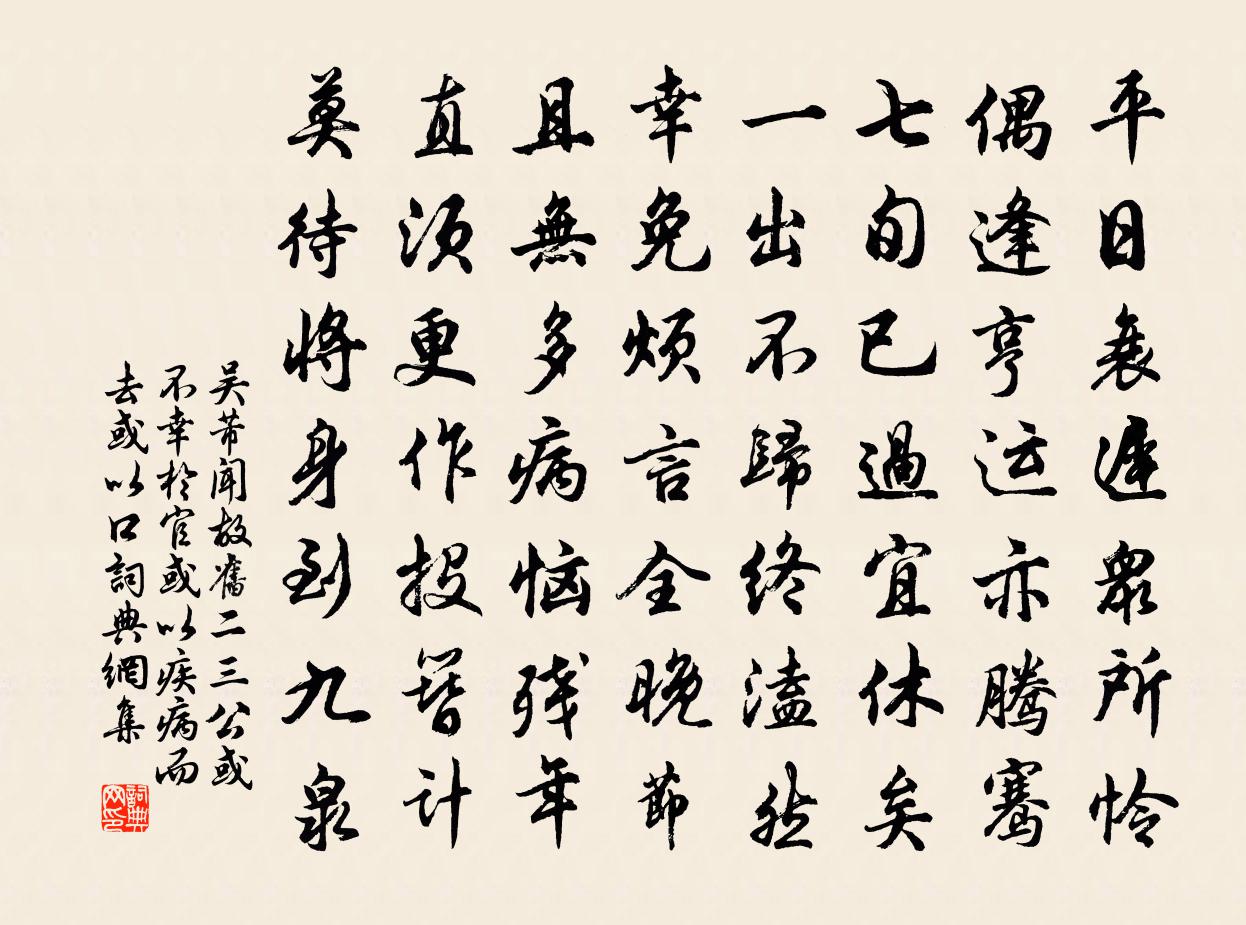 平日衰遲衆所怜
偶逢亨运亦腾骞
七旬已過宜休矣
一出不歸终溘然
幸免烦言全晚節
且無多病恼残年
直须更作投簪计
莫待将身到九泉
吴芾闻故舊二三公或
不幸於官或以疾病而
去或以口詞典網集
詞典
网印